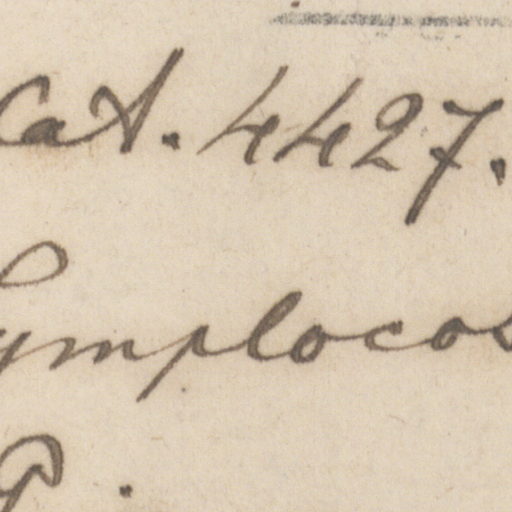 Cat. 4427.
Symplocos